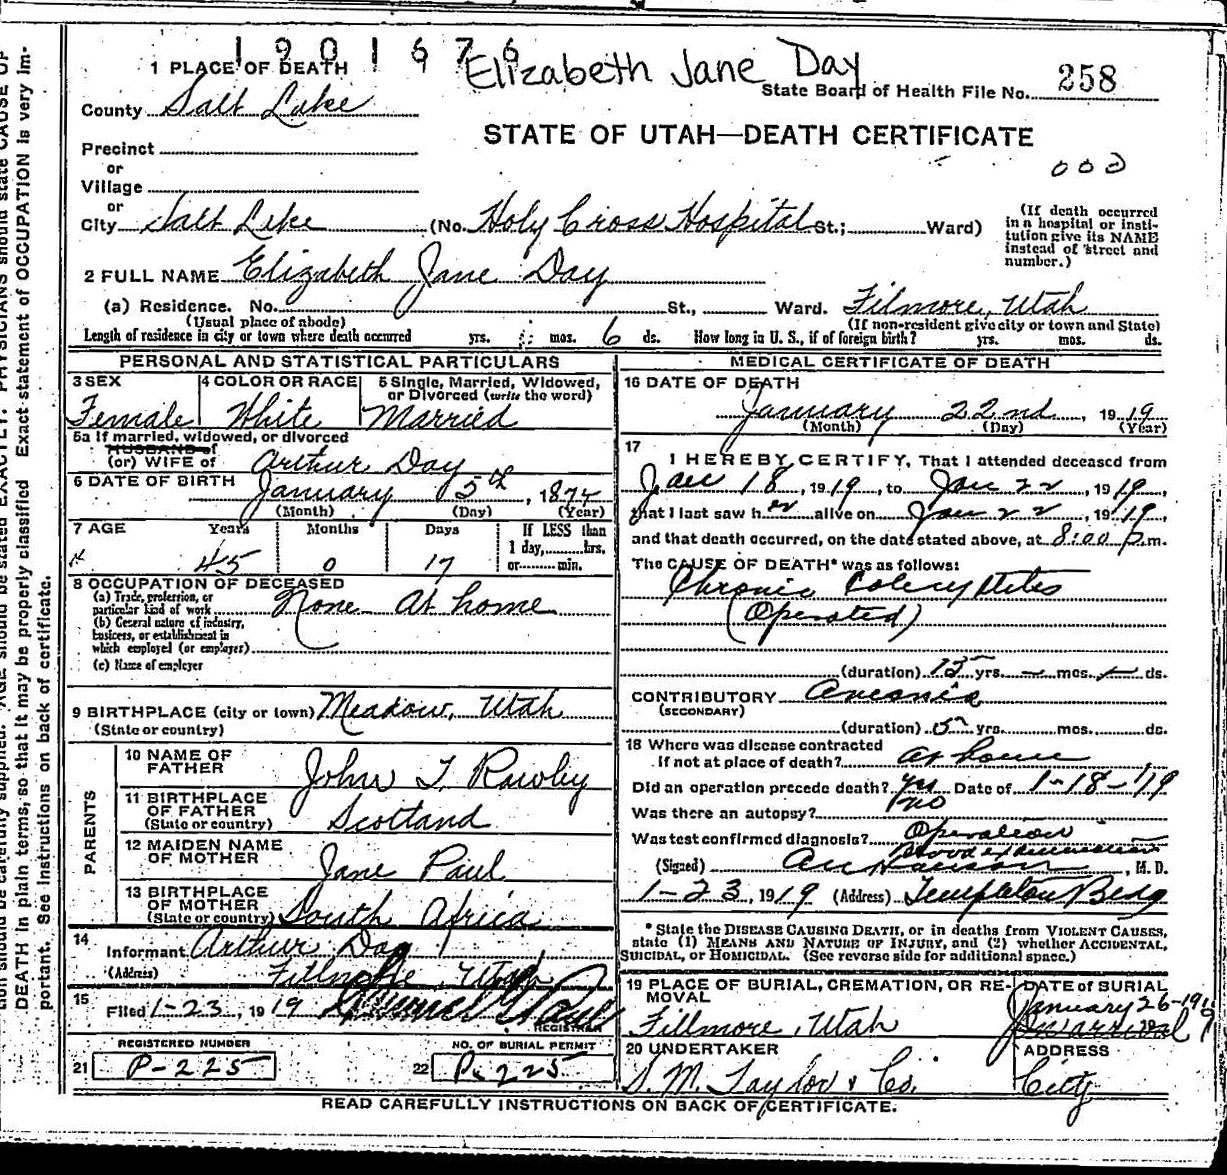 1901676
Elizabeth Jane Day
1 PLACE OF DEATH
State Board of Health File No. 258
County Salt Lake
STATE OF UTAH—DEATH CERTIFICATE
Precinct
or
Village
or
City Salt Lake (No. Holy Cross Hospital St.; Ward)
(If death occurred
in a hospital or insti-
tution give its NAME
instead of street and
number.)
2 FULL NAME Elizabeth Jane Day
(a) Residence. No. St., Ward. Filmore, Utah
(Usual place of abode) (If non-resident give city or town and State)
Length of residence in city or town where death occurred yrs. mos. 6 ds. How long in U. S., if of foreign birth? yrs. mos. ds.
PERSONAL AND STATISTICAL PARTICULARS
3 SEX 4 COLOR OR RACE 5 Single, Married, Widowed,
or Divorced (write the word)
Female White Married
5a If married, widowed, or divorced
HUSBAND of
(or) WIFE of Arthur Day
6 DATE OF BIRTH January 5th, 1874
(Month) (Day) (Year)
7 AGE Years Months Days If LESS than
1 day, hrs.
45 0 17 or min.
8 OCCUPATION OF DECEASED
(a) Trade, profession, or
particular kind of work None At home
(b) General nature of industry,
business, or establishment in
which employed (or employer)
(c) Name of employer
9 BIRTHPLACE (city or town) Meadow, Utah
(State or country)
PARENTS
10 NAME OF
FATHER John T. Rowley
11 BIRTHPLACE
OF FATHER
(State or country) Scotland
12 MAIDEN NAME
OF MOTHER Jane Paul
13 BIRTHPLACE
OF MOTHER
(State or country) South Africa
14
Informant Arthur Day
(Address) Fillmore, Utah
15
Filed 1-23, 1919
REGISTRAR
REGISTERED NUMBER NO. OF BURIAL PERMIT
21 P-225 22 P-225
MEDICAL CERTIFICATE OF DEATH
16 DATE OF DEATH
January 22nd, 1919
(Month) (Day) (Year)
17
I HEREBY CERTIFY, That I attended deceased from
Jan 18, 1919, to Jan 22, 1919,
that I last saw her alive on Jan 22, 1919,
and that death occurred, on the date stated above, at 8:00 P.m.
The CAUSE OF DEATH* was as follows:
Chronic
(Operated)
(duration) 15 yrs. mos. ds.
CONTRIBUTORY
(SECONDARY)
(duration) 5 yrs. mos. ds.
18 Where was disease contracted
if not at place of death? at home
Did an operation precede death? yes Date of 1-18-'19
Was there an autopsy? no
Was test confirmed diagnosis? Operation
(Signed) , M. D.
1-23, 1919 (Address) Templeton Bldg
* State the DISEASE CAUSING DEATH, or in deaths from VIOLENT CAUSES,
state (1) MEANS AND NATURE OF INJURY, and (2) whether ACCIDENTAL,
SUICIDAL, or HOMICIDAL. (See reverse side for additional space.)
19 PLACE OF BURIAL, CREMATION, OR RE- DATE of BURIAL
MOVAL January 26-1919
Fillmore, Utah
20 UNDERTAKER ADDRESS
S. M. Taylor & Co. City
READ CAREFULLY INSTRUCTIONS ON BACK OF CERTIFICATE.
DEATH in plain terms, so that it may be properly classified. Exact statement of OCCUPATION is very im-
portant. See instructions on back of certificate.